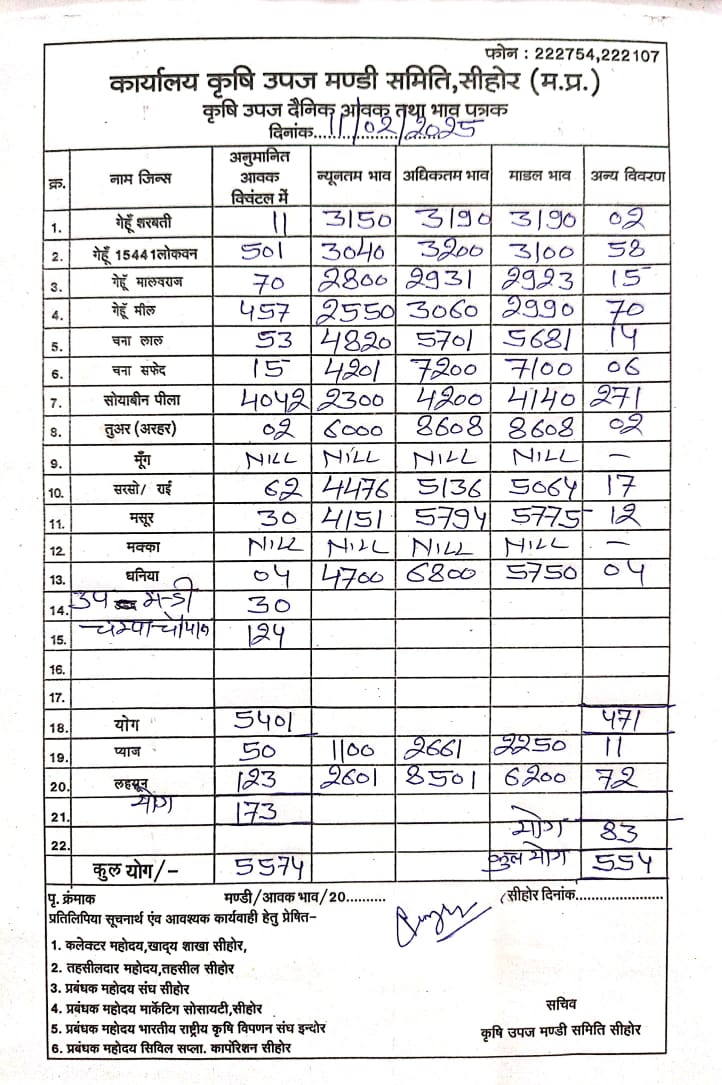 फोन : 222754,222107
कार्यालय कृषि उपज मण्डी समिति,सीहोर (म.प्र.)
कृषि उपज दैनिक आवक तथा भाव पत्रक
दिनांक....11/02/2025
क्र. नाम जिन्स अनुमानित आवक क्विंटल में न्यूनतम भाव अधिकतम भाव माडल भाव अन्य विवरण
1. गेहूँ शरबती 11 3150 3190 3190 02
2. गेहूँ 15441लोकवन 501 3040 3200 3100 58
3. गेहूँ मालवराज 70 2800 2931 2923 15
4. गेहूँ मील 457 2550 3060 2990 70
5. चना लाल 53 4820 5701 5681 14
6. चना सफेद 15 4201 7200 7100 06
7. सोयाबीन पीला 4042 2300 4200 4140 271
8. तुअर (अरहर) 02 6000 8608 8608 02
9. मूँग NILL NILL NILL NILL –
10. सरसो/ राई 62 4476 5136 5064 17
11. मसूर 30 4151 5794 5775 12
12. मक्का NILL NILL NILL NILL –
13. धनिया 04 4700 6800 5750 04
14. उप मन्डी 30
15. 124
16.
17.
18. योग 5401 471
19. प्याज 50 1100 2661 2250 11
20. लहसून 123 2601 8501 6200 72
21. योग 173
22. योग 83
कुल योग/- 5574 कुल योग 554
पृ. क्रंमाक मण्डी/आवक भाव/20.......... सीहोर दिनांक.......................
प्रतिलिपिया सूचनार्थ एंव आवश्यक कार्यवाही हेतु प्रेषित-
1. कलेक्टर महोदय,खाद्य शाखा सीहोर,
2. तहसीलदार महोदय,तहसील सीहोर
3. प्रबंधक महोदय संघ सीहोर
4. प्रबंधक महोदय मार्केटिग सोसायटी,सीहोर
5. प्रबंधक महोदय भारतीय राष्ट्रीय कृषि विपणन संघ इन्दोर
6. प्रबंधक महोदय सिविल सप्ला. कार्पोरेशन सीहोर
सचिव
कृषि उपज मण्डी समिति सीहोर